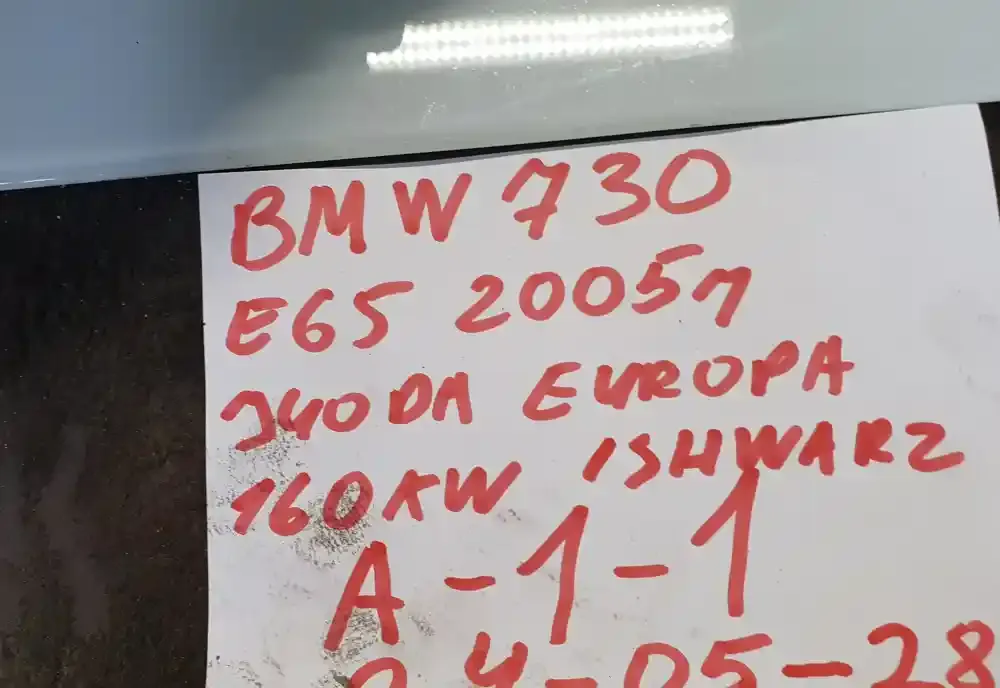 BMW 730
E65 2005m
JUODA EUROPA
160KW ISHWARZ
A-1-1
24-05-28